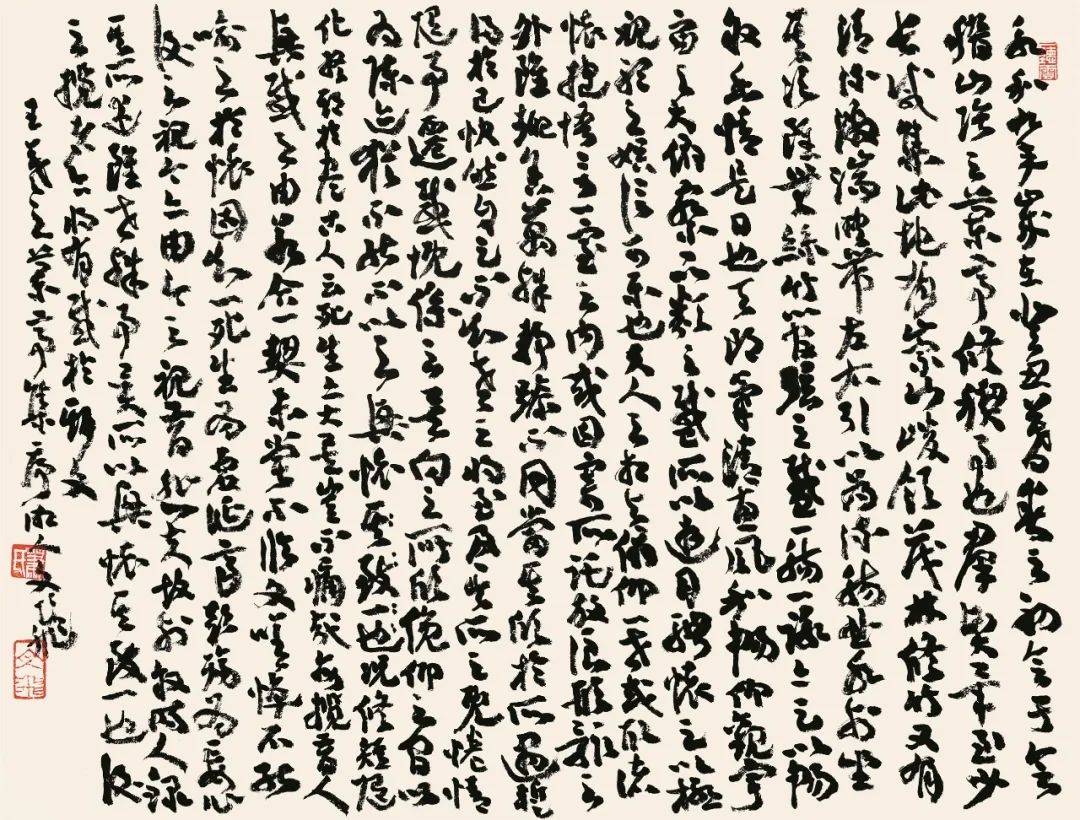 永和九年歲在癸丑暮春之初會于會
稽山陰之蘭亭修禊事也群賢畢至少
長咸集此地有崇山峻領茂林修竹又有
清流激湍映帶左右引以為流觴曲水列坐
其次雖無絲竹管弦之盛一觴一詠亦足以暢
敘幽情是日也天朗氣清惠風和暢仰觀宇
宙之大俯察品類之盛所以遊目騁懷足以極
視聽之娛信可樂也夫人之相與俯仰一世或取諸
懷抱悟言一室之內或因寄所託放浪形骸之
外雖趣舍萬殊靜躁不同當其欣於所遇暫
得於己快然自足不知老之將至及其所之既惓情
隨事遷感慨係之矣向之所欣俛仰之間以
為陳迹猶不能不以之興懷其致一也況修短隨
化終期於盡古人云死生亦大矣豈不痛哉每攬昔人
興感之由若合一契未嘗不臨文嗟悼不能
喻之於懷固知一死生為虛誕齊彭殤為妄作
後之視今亦由今之視昔悲夫故列敘時人錄
其所述雖世殊事異所以興懷其致一也後
之攬者亦將有感於斯文
王羲之蘭亭集序